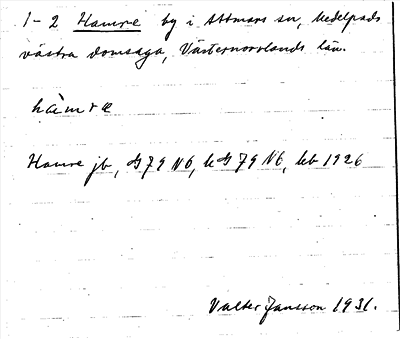 1-2 Hamre by i Attmars sn, Medelpads
västra domsaga, Västernorrlands län.
hàmræ
Hamre jb, G 79 N6, kG 79 N6, kb 1926
Valter Jansson 1931.